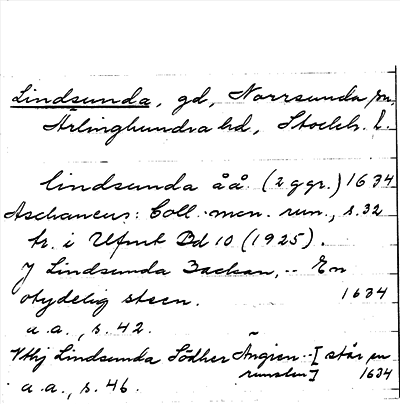 Lindsunda, gd, Norrsunda sn,
Ärlinghundra hd, Stockh. l.
lindsunda åå (2 ggr.) 1634
Aschaneus: Coll. mon. run., s. 32
tr. i Ufmt Bd 10 (1925).
J Lindsunda Backan, -- En
otydelig steen. 1634
a.a., s. 42.
Vthj Lindsunda Södher Ängien -- [står en
runsten] 1634
a.a., s. 46.